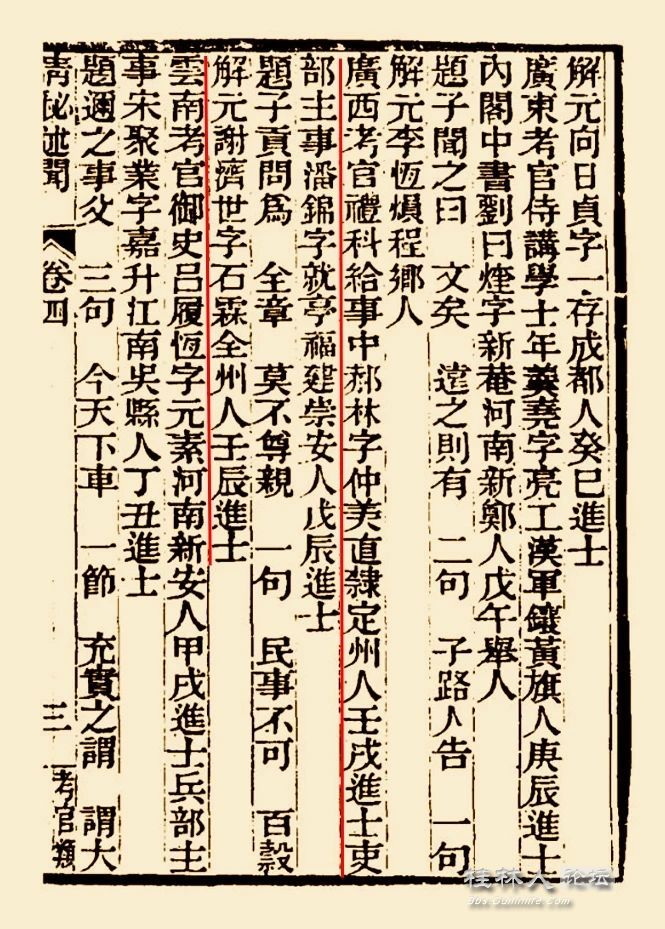 解元向日貞字一存成都人癸巳進士
廣東考官侍講學士年羹堯字亮工漢軍鑲黃旗人庚辰進士
內閣中書劉曰煃字新菴河南新鄭人戊午舉人
題子聞之曰 文矣 遠之則有 二句 子路人告 一句
解元李恆熉程鄉人
廣西考官禮科給事中郝林字仲美直隸定州人壬戌進士吏
部主事潘錦字就亭福建崇安人戊辰進士
題子貢問為 全章 莫不尊親 一句 民事不可 百穀
解元謝濟世字石霖全州人壬辰進士
雲南考官御史呂履恆字元素河南新安人甲戌進士兵部主
事宋聚業字嘉升江南吳縣人丁丑進士
題邇之事父 三句 今天下車 一節 充實之謂 謂大
清秘述聞 卷四 三 考官類
桂林人论坛
bbs.Guilinlife.Com